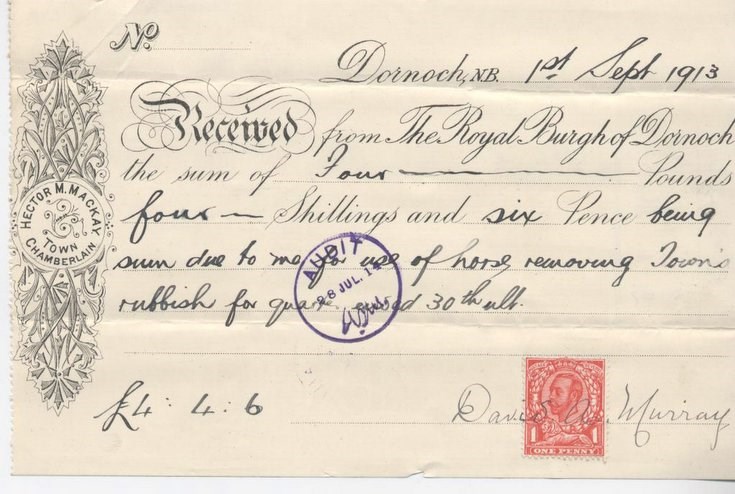 No.
Dornoch, N.B. 1st Sept 1913
Received from The Royal Burgh of Dornoch
the sum of Four Pounds
four Shillings and six Pence being
sum due to me for use of horse removing Town's
rubbish for quar ended 30th ult.
£4: 4: 6
David Murray
HECTOR M. MACKAY
TOWN
CHAMBERLAIN
AUDIT
28 JUL. 14
1 1
ONE PENNY